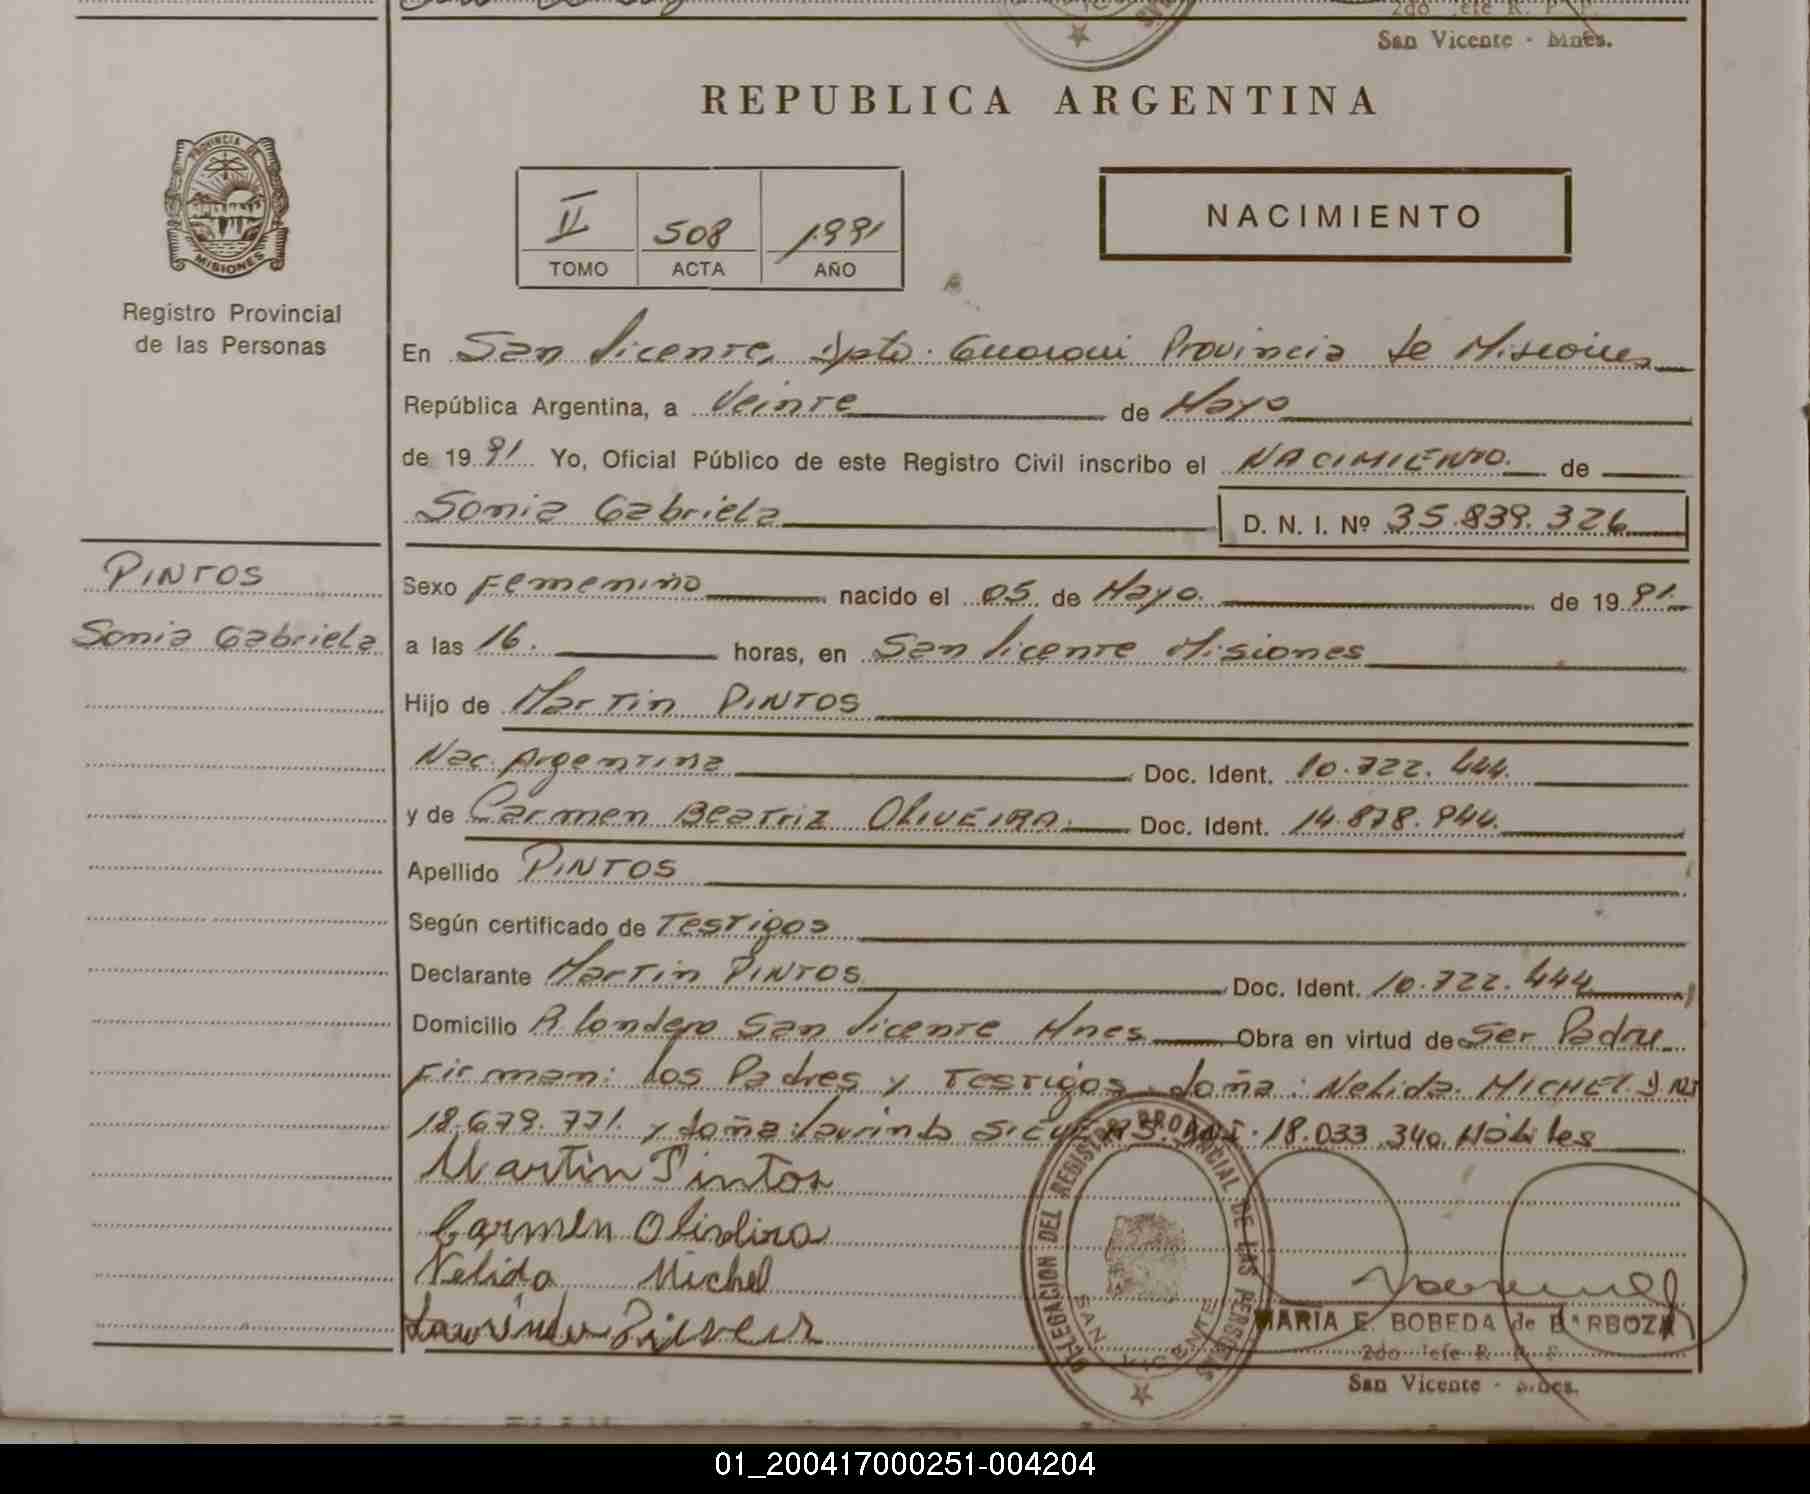 2do Jefe R. P. P.
San Vicente - Mnes.
REPUBLICA ARGENTINA
PROVINCIA DE
MISIONES
Registro Provincial
de las Personas
II 508 1991
TOMO ACTA AÑO
NACIMIENTO
En San Vicente, Dpto. Guaraní Provincia de Misiones
República Argentina, a Veinte de Mayo
de 1991 Yo, Oficial Público de este Registro Civil inscribo el NACIMIENTO. de
Sonia Gabriela D. N. I. Nº 35.839.326
PINTOS
Sonia Gabriela
Sexo Femenino nacido el 05 de Mayo. de 1991.
a las 16. horas, en San Vicente Misiones
Hijo de Martin PINTOS
Nac. Argentina Doc. Ident. 10.722.444.
y de Carmen Beatriz OLIVEIRA. Doc. Ident. 14.878.944.
Apellido PINTOS
Según certificado de Testigos
Declarante Martin PINTOS Doc. Ident. 10.722.444
Domicilio San Vicente Mnes Obra en virtud de Ser Padre
Firman: los Padres y Testigos doña: Nelida MICHEL D.NI
18.679.771. y doña: 18.033.340. Hábiles
Martin Pintos
Carmen Oliveira
Nelida Michel
DELEGACION DEL REGISTRO PROVINCIAL DE LAS PERSONAS
SAN VICENTE
MARIA E. BOBEDA de BARBOZA
2do Jefe R. P. P.
San Vicente - Mnes.
01_200417000251-004204